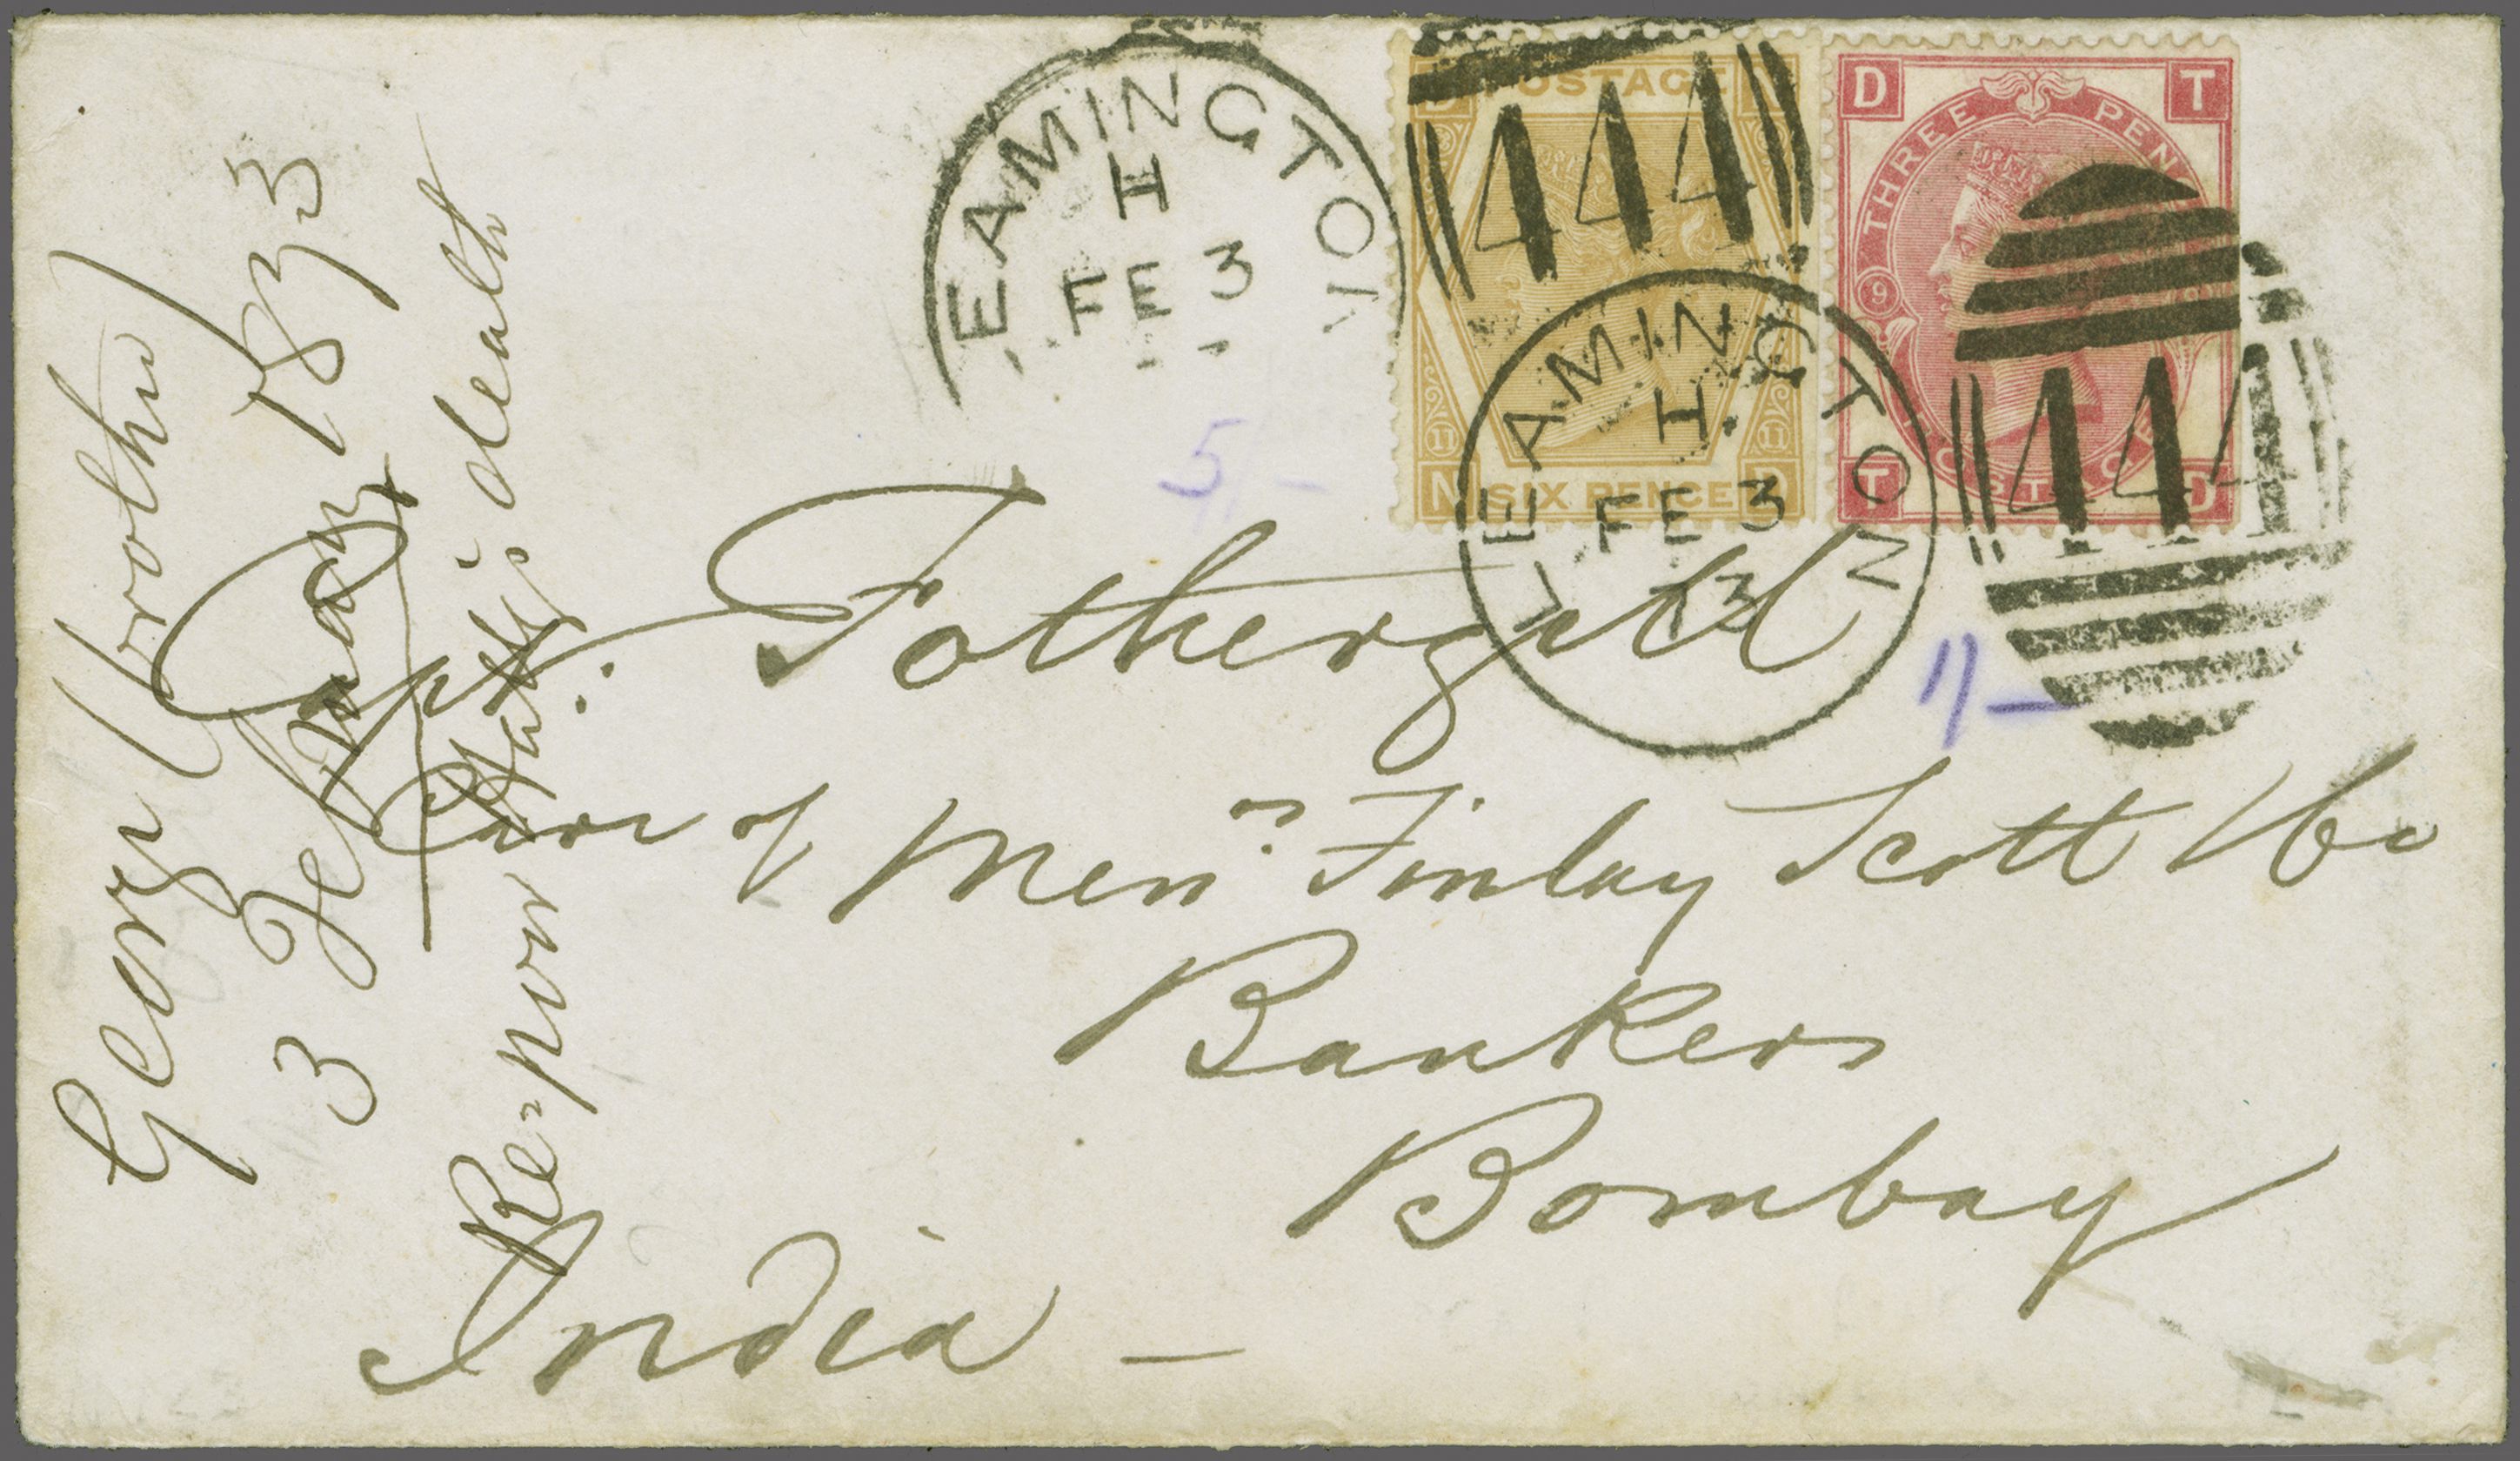 EAMINGTON
H
FE 3
POSTAGE
444
N SIX PENCE D
11 11
D T
THREE PEN
9
T D
444
LEAMINGTON
H
FE 3
73
5/-
1/-
Capt. Fothergill
Care of Messrs Finlay Scott & Co
Bankers
Bombay
India –
George (brother)
3 February 1873
Re = poor death